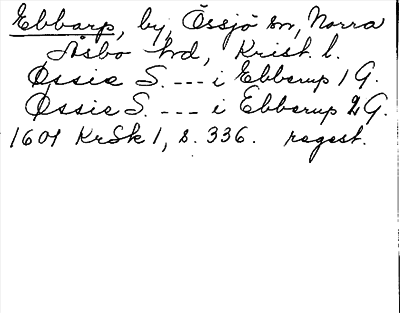 Ebbarp, by, Össjö sn, Norra
Åsbo hd, Krist. l.
Øssie S. --- i Ebberup 1 G.
Øssie S. --- i Ebberup 2 G.
1601 KrSk 1, s. 336. regest.